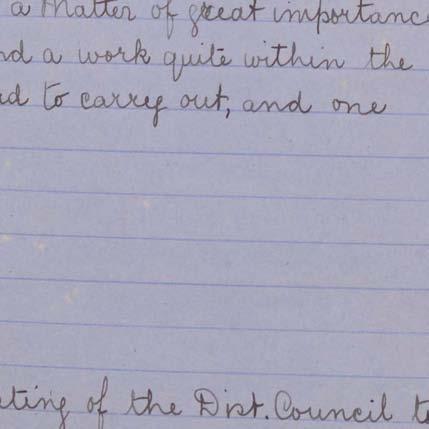 a matter of great importanc
nd a work quite within the
d to carry out, and one
eting of the Dist. Council t